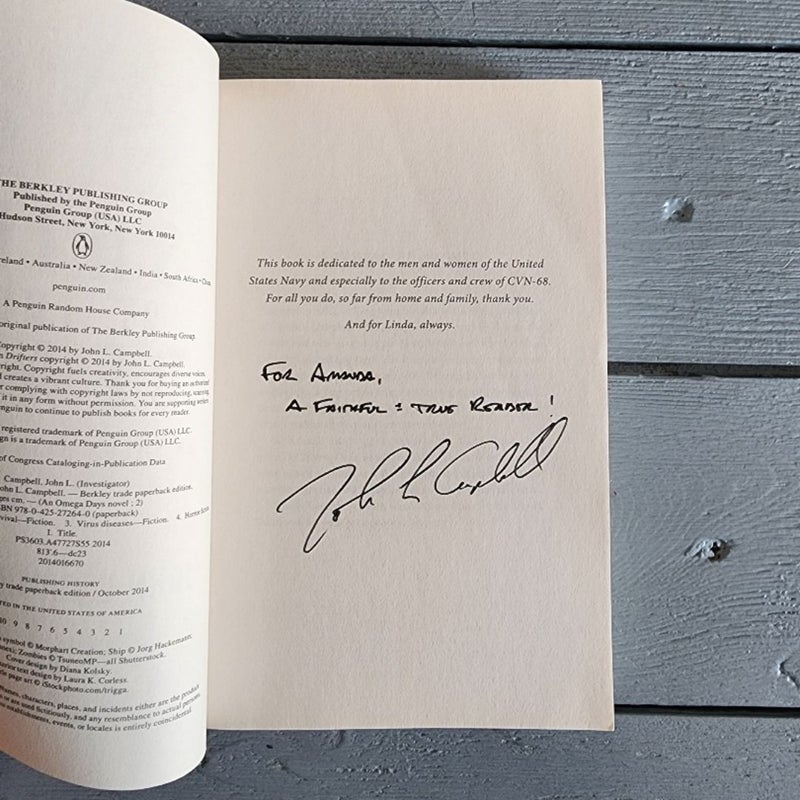 THE BERKLEY PUBLISHING GROUP
Published by the Penguin Group
Penguin Group (USA) LLC
Hudson Street, New York, New York 10014
reland • Australia • New Zealand • India • South Africa • China
penguin.com
A Penguin Random House Company
original publication of The Berkley Publishing Group.
Copyright © 2014 by John L. Campbell.
Drifters copyright © 2014 by John L. Campbell.
right. Copyright fuels creativity, encourages diverse voices,
creates a vibrant culture. Thank you for buying an authorized
complying with copyright laws by not reproducing, scanning,
it in any form without permission. You are supporting writers
nguin to continue to publish books for every reader.
registered trademark of Penguin Group (USA) LLC.
gn is a trademark of Penguin Group (USA) LLC.
of Congress Cataloging-in-Publication Data
Campbell, John L. (Investigator)
ohn L. Campbell. — Berkley trade paperback edition.
ges cm. — (An Omega Days novel ; 2)
BN 978-0-425-27264-0 (paperback)
vival—Fiction. 3. Virus diseases—Fiction. 4. Horror fiction.
I. Title.
PS3603.A47727S55 2014
813'.6—dc23
2014016670
PUBLISHING HISTORY
y trade paperback edition / October 2014
TED IN THE UNITED STATES OF AMERICA
10 9 8 7 6 5 4 3 2 1
symbol © Morphart Creation; Ship © Jorg Hackemann;
Zombies © TsuneoMP—all Shutterstock.
Cover design by Diana Kolsky.
terior text design by Laura K. Corless.
tle page art © iStockphoto.com/trigga.
Names, characters, places, and incidents either are the product
or are used fictitiously, and any resemblance to actual persons,
establishments, events, or locales is entirely coincidental.
This book is dedicated to the men and women of the United
States Navy and especially to the officers and crew of CVN-68.
For all you do, so far from home and family, thank you.
And for Linda, always.
FOR AMANDA,
A FAITHFUL & TRUE READER!
John L Campbell